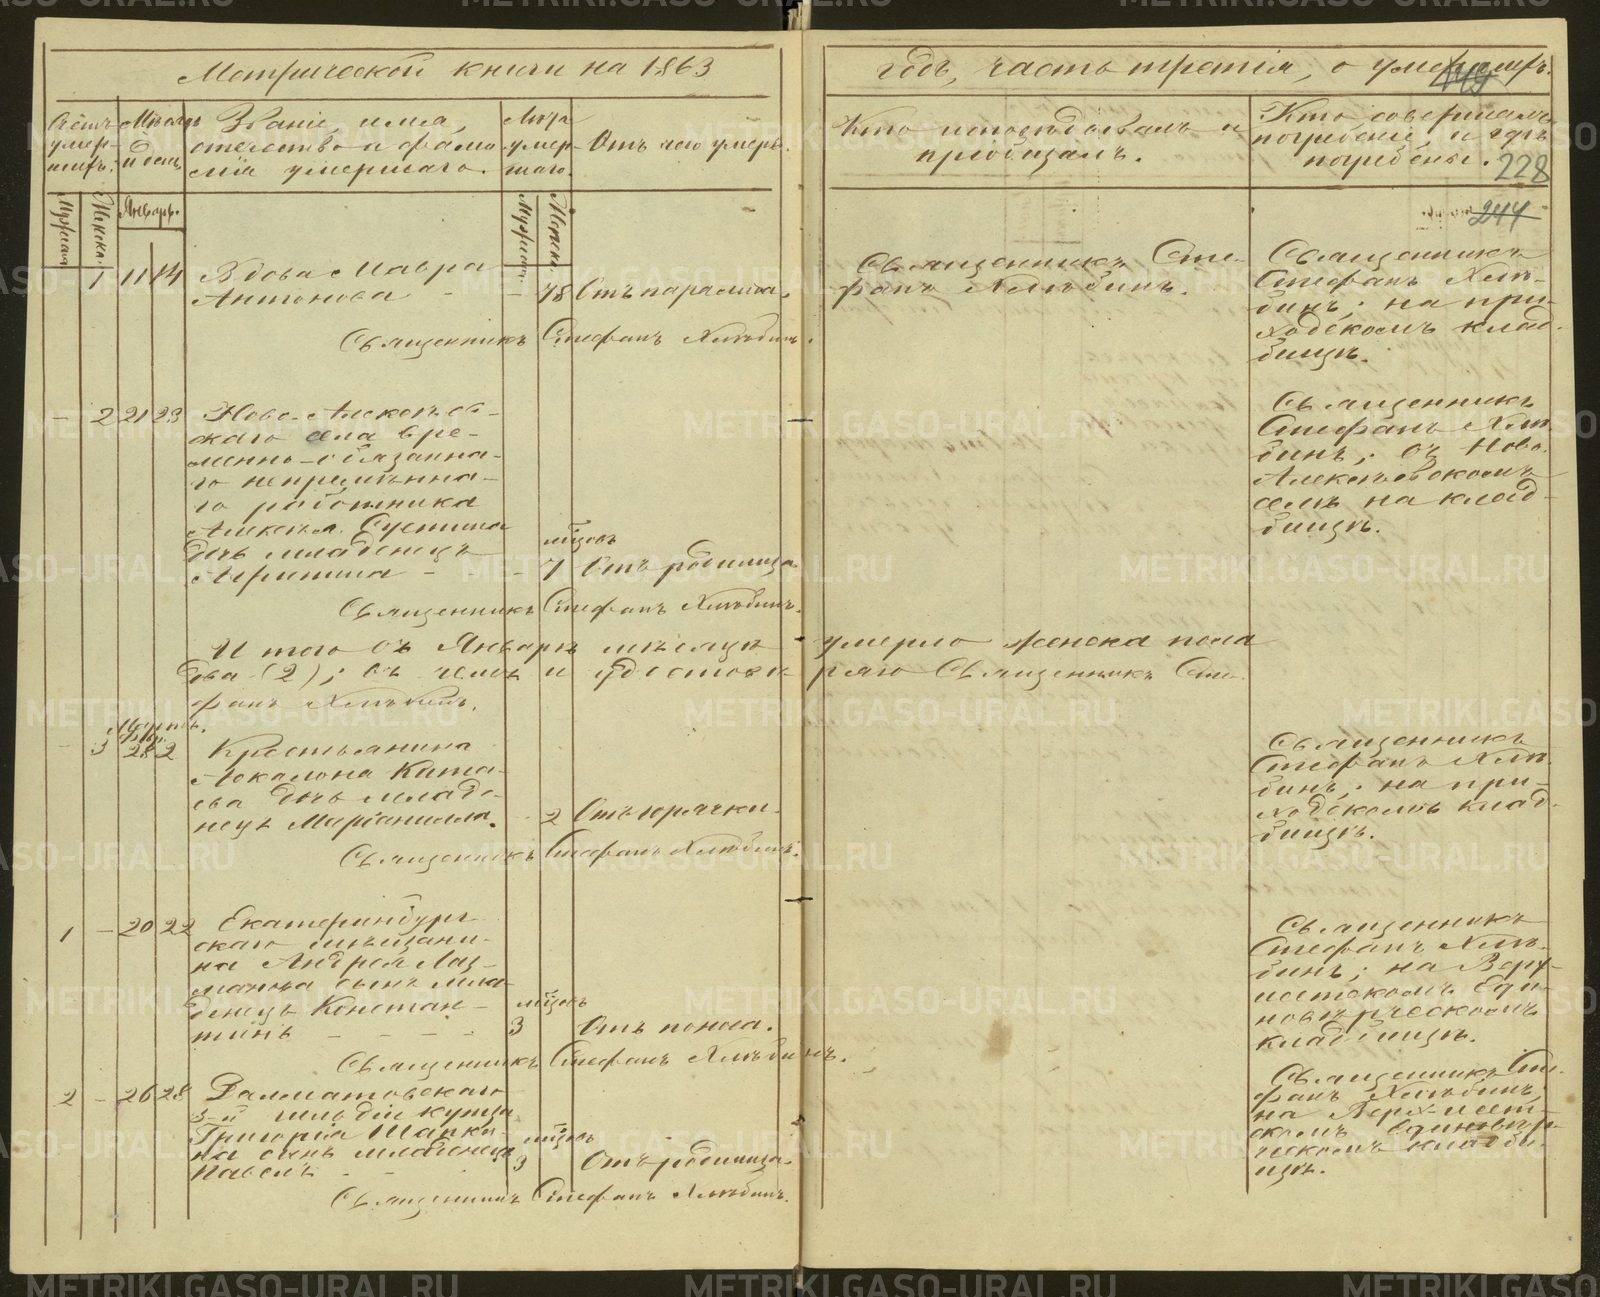 Метрической книги на 1863
годъ, часть третія, о умершихъ.
149
Счетъ умер-
шихъ.
Мѣсяцъ
и день
Званіе, имя,
отечество и фами-
лія умершаго.
Лѣта
умер-
шаго.
Отъ чего умеръ.
Кто исповѣдовалъ и
пріобщалъ.
Кто совершалъ
погребеніе, и гдѣ
погребены.
228
244
Мужска
Женска
Январь.
Мужска
Женска
1 11 14
Вдова Мавра
Антонова - - 78 Отъ паралича.
Священникъ Сте-
фанъ Хлѣбинъ.
Священникъ
Стефанъ Хлѣ-
бинъ; на при-
ходскомъ клад-
бищѣ.
Священникъ Стефанъ Хлѣбинъ.
- 2 21 23
Ново-Алексѣев-
скаго села вре-
менно-обязанна-
го непремѣнна-
го работника
Алексѣя Сустина
дочь младенецъ
Агрипина - - - мѣсяц. 7 Отъ родимца.
Священникъ
Стефанъ Хлѣ-
бинъ; въ Ново-
Алексѣевскомъ
селѣ на клад-
бищѣ.
Священникъ Стефанъ Хлѣбинъ.
И того въ Январѣ мѣсяцѣ умерло женска пола
два (2); въ чемъ и удостовѣряю Священникъ Сте-
фанъ Хлѣбинъ.
Мартъ.
Февр.
- 3 28 2
Крестьянина
Аскалона Ката-
ева дочь младе-
нецъ Маріанилла. - 2 Отъ горячки.
Священникъ
Стефанъ Хлѣ-
бинъ; на при-
ходскомъ клад-
бищѣ.
Священникъ Стефанъ Хлѣбинъ.
1 - 20 22
Екатеринбург-
скаго мѣщани-
на Андрея Лаз-
манова сынъ мла-
денецъ Констан-
тинъ - - - мѣсяц. 3 Отъ поноса.
Священникъ
Стефанъ Хлѣ-
бинъ; на Верх-
исетскомъ Еди-
новѣрческомъ
кладбищѣ.
Священникъ Стефанъ Хлѣбинъ.
2 - 26 28
Далматовскаго
3-й гильдіи купца
Григорія Шапки-
на сынъ младенецъ
Павелъ - - мѣсяц. 3 Отъ родимца.
Священникъ Сте-
фанъ Хлѣбинъ;
на Верх-исет-
скомъ единовѣр-
ческомъ кладби-
щѣ.
Священникъ Стефанъ Хлѣбинъ.
METRIKI.GASO-URAL.RU